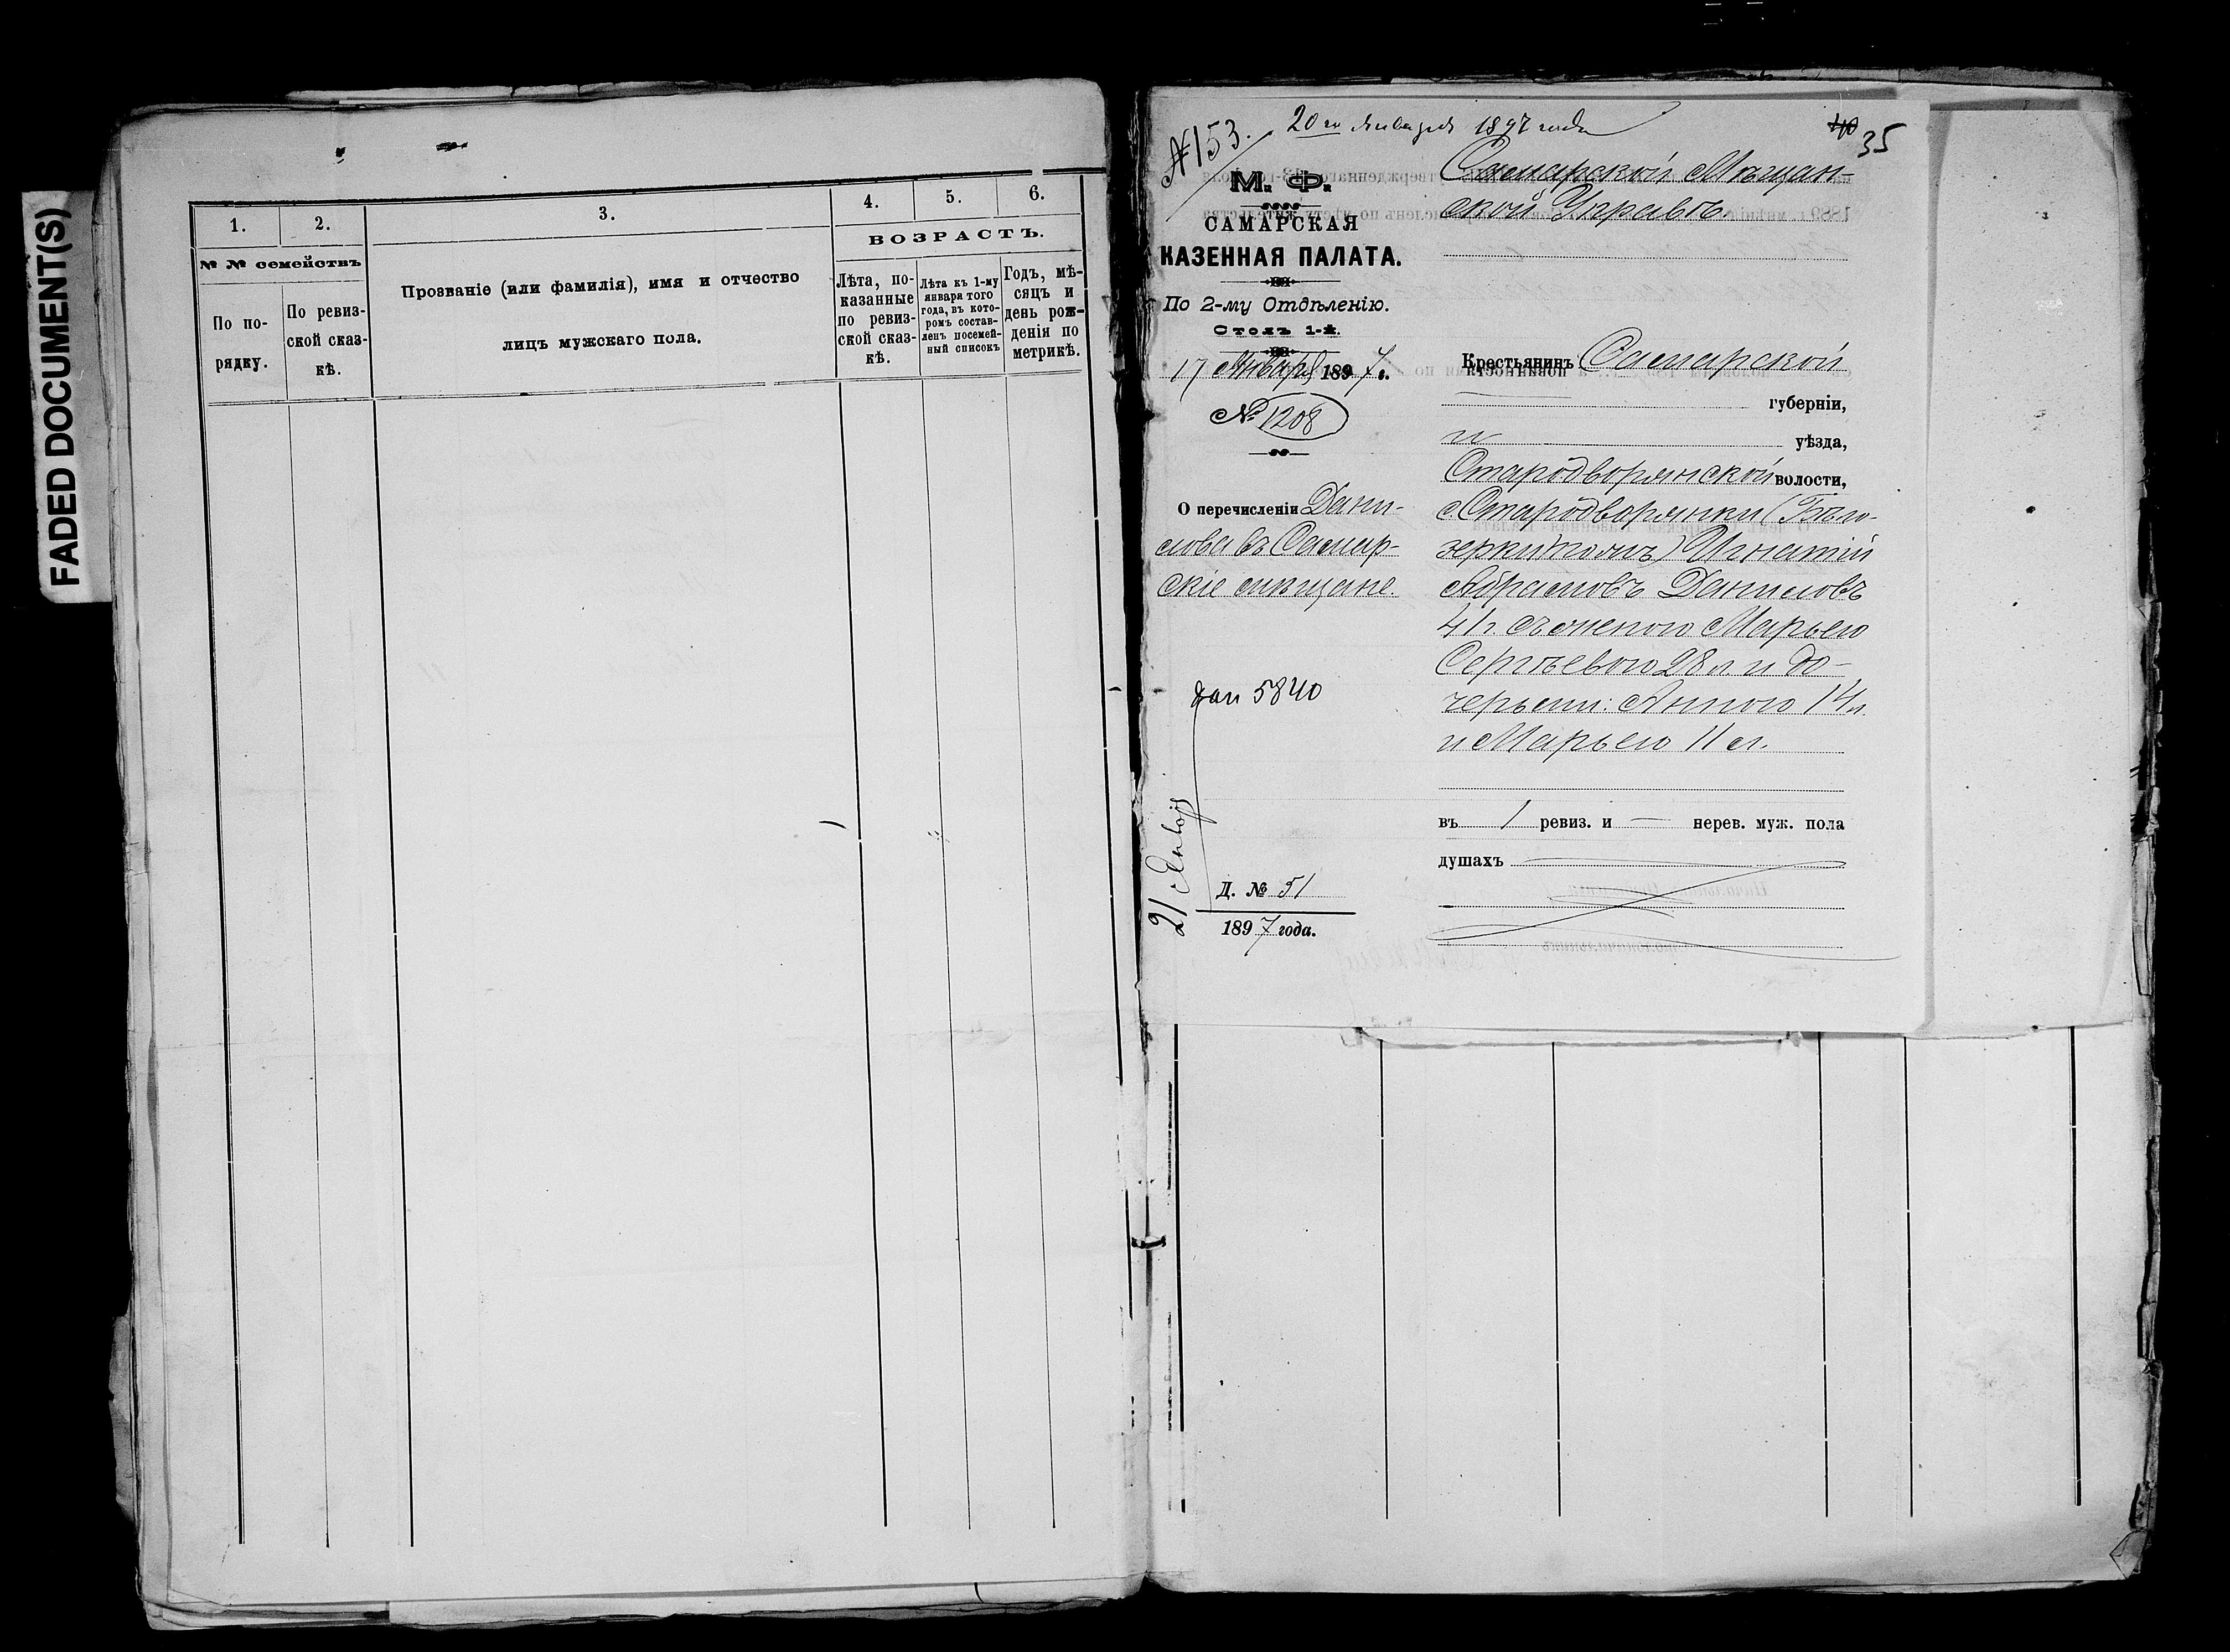 FADED DOCUMENT(S)
1.
2.
3.
4.
5.
6.
№ № семействъ
По по-
рядку.
По ревиз-
ской сказ-
кѣ.
Прозваніе (или фамилія), имя и отчество
лицъ мужскаго пола.
ВОЗРАСТЪ.
Лѣта, по-
казанные
по ревиз-
ской сказ-
кѣ.
Лѣта къ 1-му
января того
года, въ кото-
ромъ состав-
ленъ посемей-
ный списокъ
Годъ, мѣ-
сяцъ и
день рож-
денія по
метрикѣ.
№ 153.
20го Января 1897 года
40
35
М. Ф.
САМАРСКАЯ
КАЗЕННАЯ ПАЛАТА.
По 2-му Отдѣленію.
Столъ 1-й.
17 Января 1897 г.
№ 1208
О перечисленіи Дани-
лова въ Самар-
скіе мѣщане.
5840
21 Января
Д. № 51
1897 года.
Самарской Мѣщан-
ской Управѣ.
Крестьянинъ Самарской
губерніи,
и уѣзда,
Стародворянской волости,
с. Стародворянки (Бѣло-
зерки тожъ) Игнатій
Абрамовъ Даниловъ
41 г. съ женою Марьею
Сергѣевою 28 л. и до-
черьми: Анною 14 л.
и Марьею 11 л.
въ 1 ревиз. и — нерев. муж. пола
душахъ